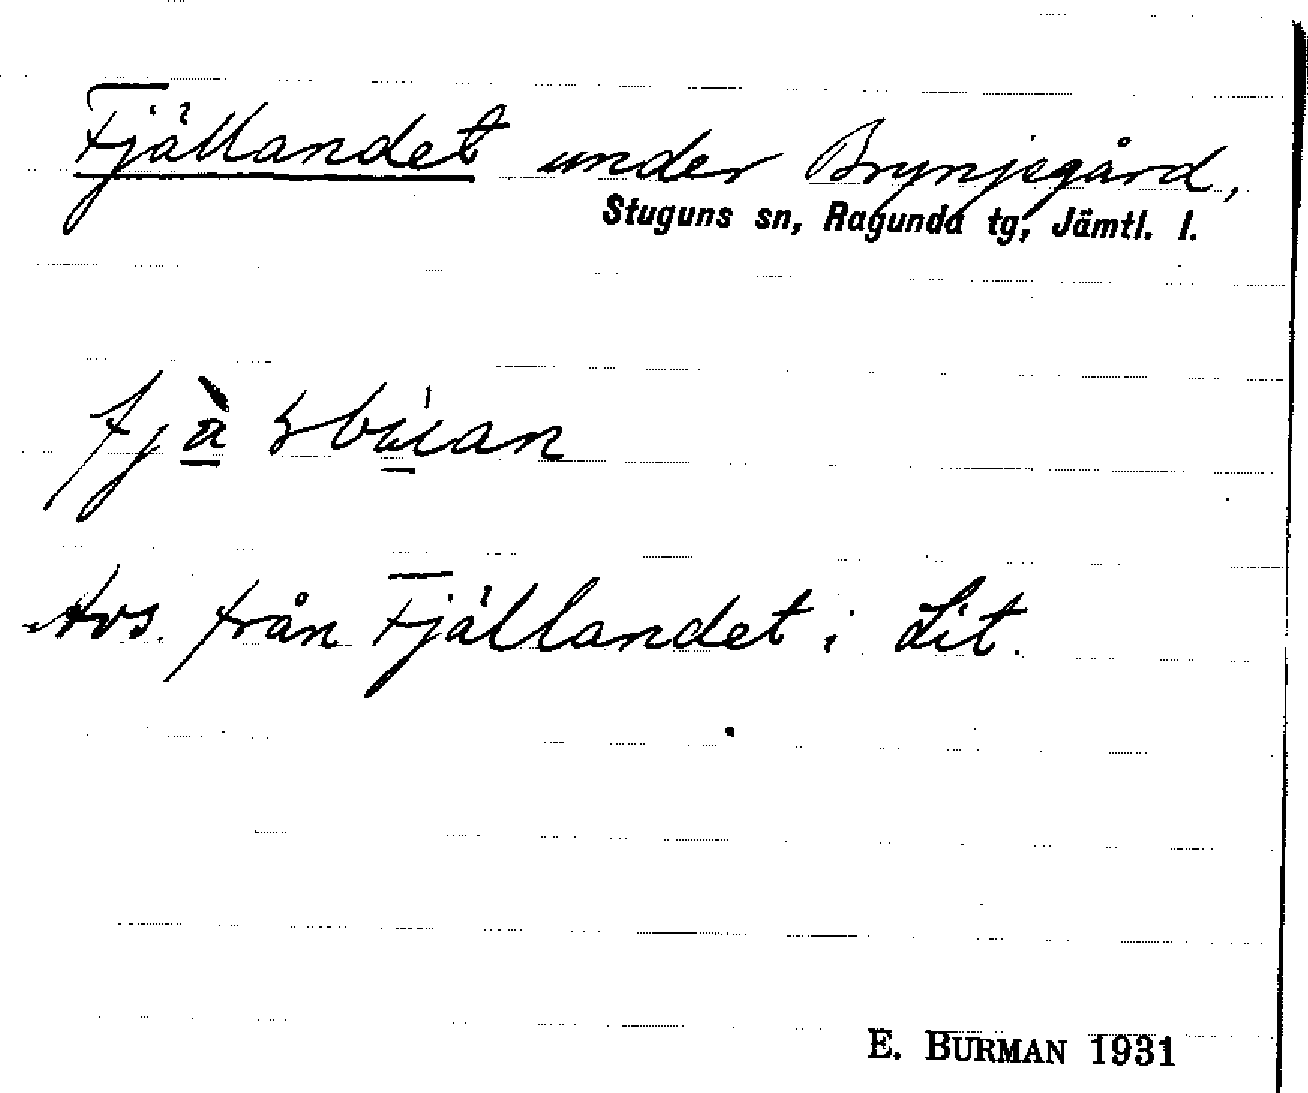 Fjällandet under Brynjegård,
Stuguns sn, Ragunda tg, Jämtl. l.
Avs. från Fjällandet i Lit.
E. BURMAN 1931